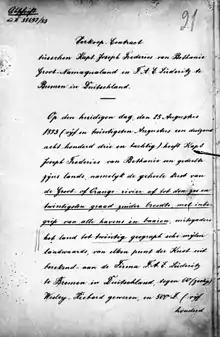 Afschrift
21
Verkoop Contract
tusschen Kapt Joseph Frederics van Bethanie
Groot-Namaqualand en F. A. E. Lüderitz te
Bremen in Duitschland.
Op den huidigen dag, den 25 Augustus
1883 (vijf en twintigsten Augustus een duizend
acht honderd drie en tachtig) heeft Kapt
Joseph Frederics van Bethanie een gedeelte
zijns lands, namelijk de geheele kust van
de Groot- of Orange rivier af tot den zes en
twintigsten graad zuider breedte met inbe-
grip van alle havens en baaien, mitsgaders
het land tot twintig geograph'sche mijlen
landwaards, van elken punt der kust uit
berekend aan de Firma F. A. E. Lüderitz
te Bremen in Duitschland, tegen
Westley-Richard geweren, en 500 £ (vijf
honderd